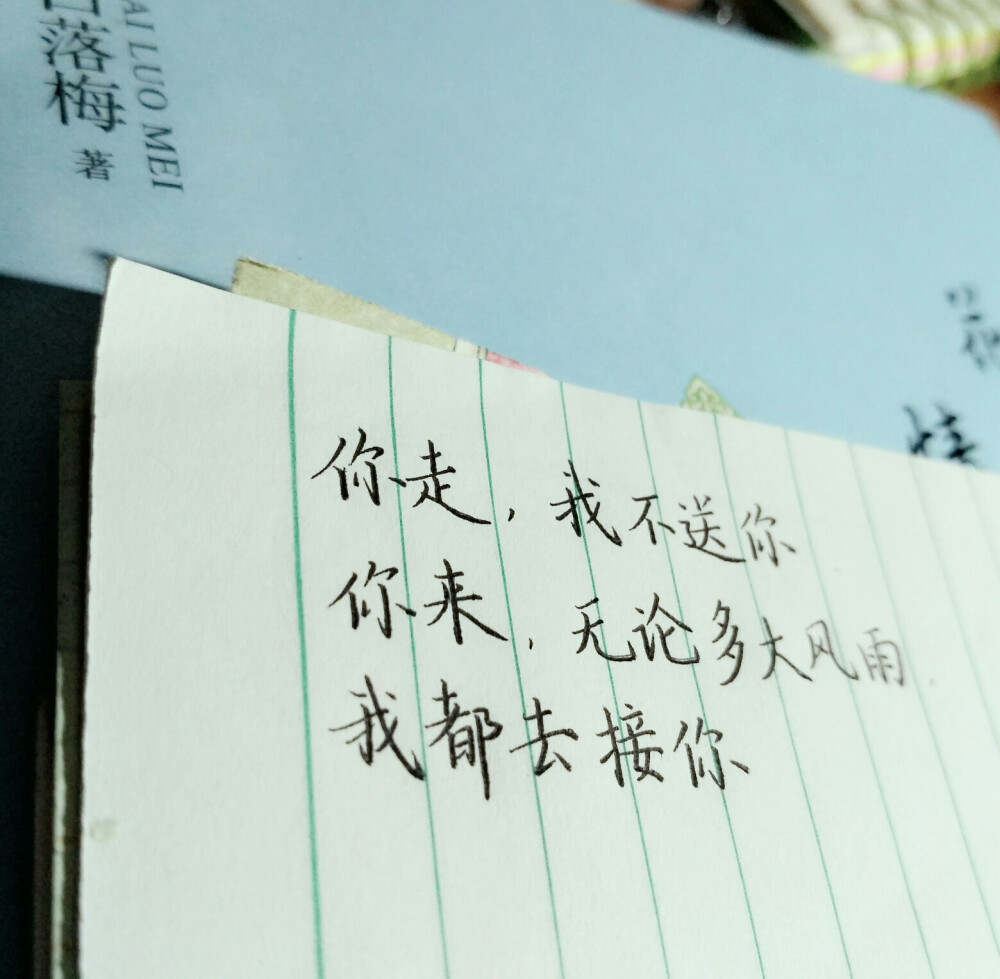 落梅 著
AI LUO MEI
你走，我不送你
你来，无论多大风雨，
我都去接你